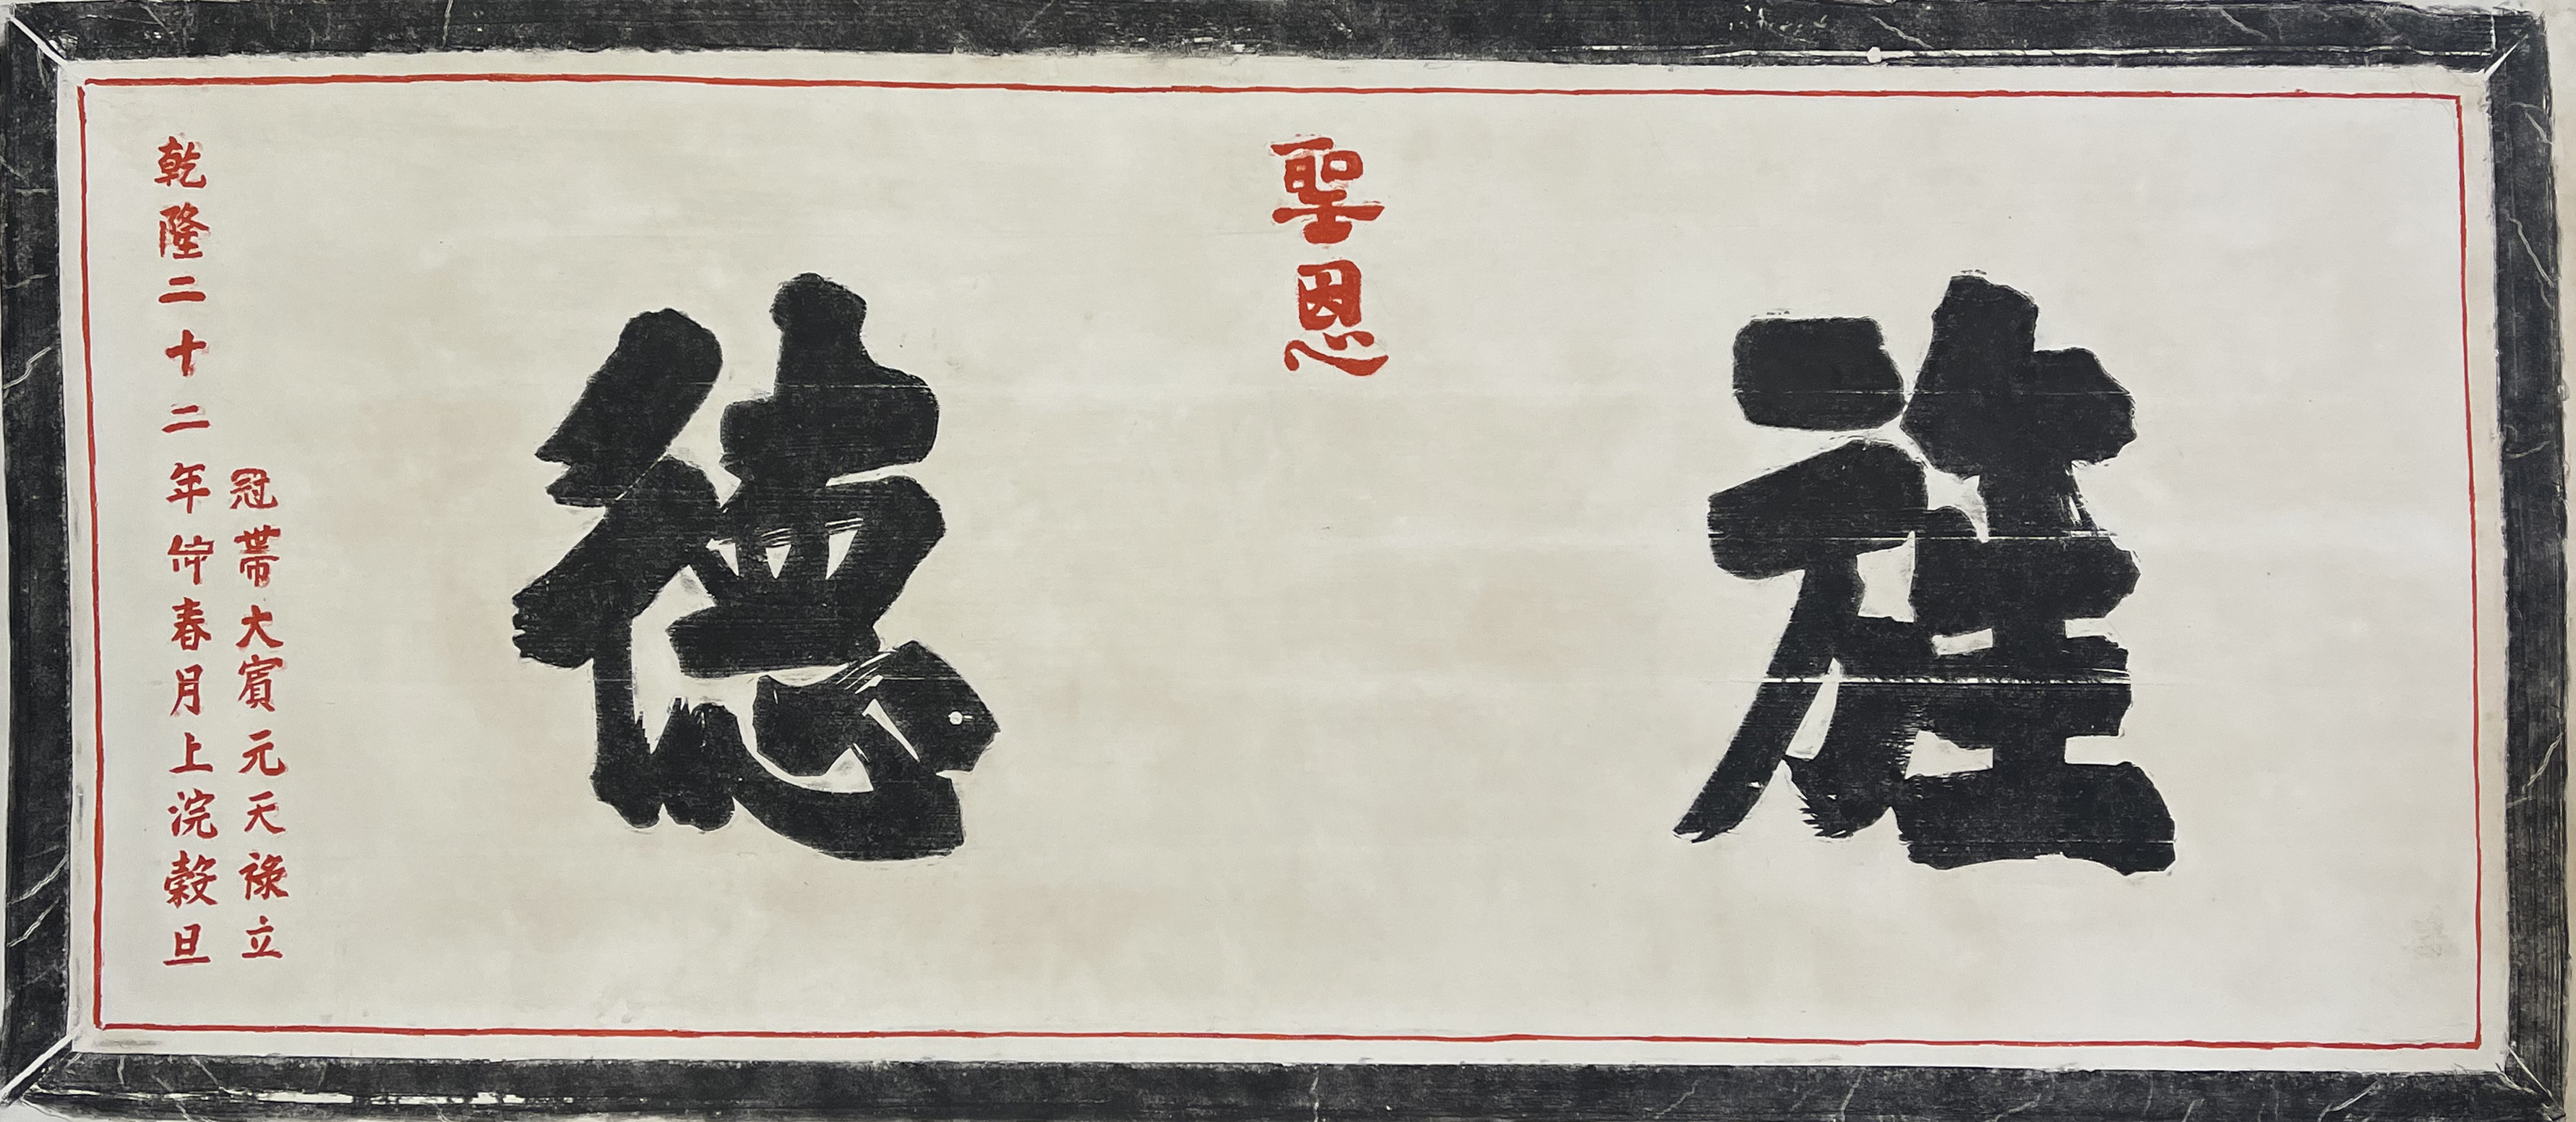 聖恩
旌德
冠帶大賓元天祿立
乾隆二十二年仲春月上浣穀旦